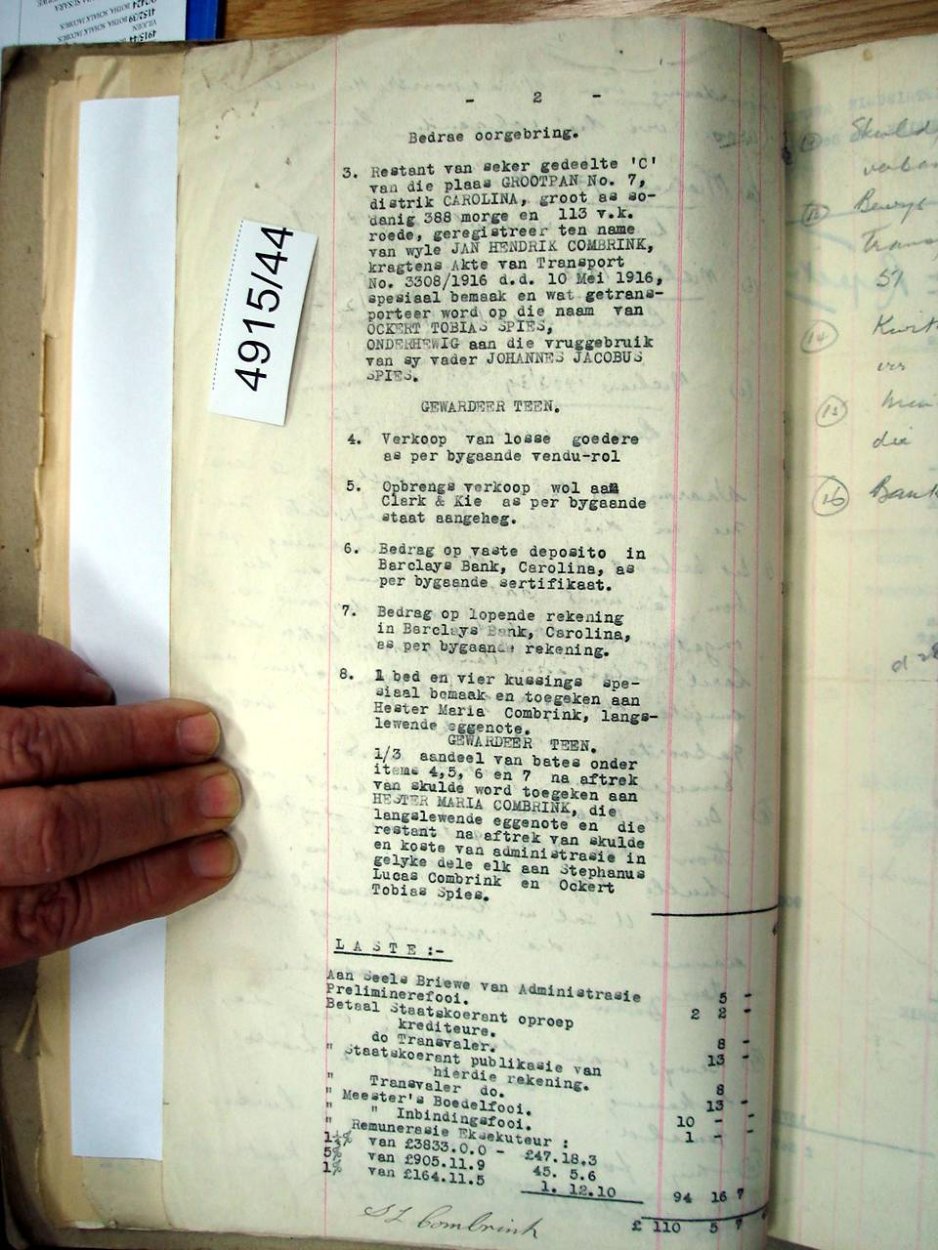 4915/44
- 2 -
Bedrae oorgebring.
3. Restant van seker gedeelte 'C'
van die plaas GROOTPAN No. 7,
distrik CAROLINA, groot as so-
danig 388 morge en 113 v.k.
roede, geregistreer ten name
van wyle JAN HENDRIK COMBRINK,
kragtens Akte van Transport
No. 3308/1916 d.d. 10 Mei 1916,
spesiaal bemaak en wat getrans-
porteer word op die naam van
OCKERT TOBIAS SPIES,
ONDERHEWIG aan die vruggebruik
van sy vader JOHANNES JACOBUS
SPIES.
GEWARDEER TEEN.
4. Verkoop van losse goedere
as per bygaande vendu-rol
5. Opbrengs verkoop wol aan
Clark & Kie as per bygaande
staat aangeheg.
6. Bedrag op vaste deposito in
Barclays Bank, Carolina, as
per bygaande sertifikaat.
7. Bedrag op lopende rekening
in Barclays Bank, Carolina,
as per bygaande rekening.
8. 1 bed en vier kussings spe-
siaal bemaak en toegeken aan
Hester Maria Combrink, langs-
lewende eggenote.
GEWARDEER TEEN.
1/3 aandeel van bates onder
items 4,5, 6 en 7 na aftrek
van skulde word toegeken aan
HESTER MARIA COMBRINK, die
langslewende eggenote en die
restant na aftrek van skulde
en koste van administrasie in
gelyke dele elk aan Stephanus
Lucas Combrink en Ockert
Tobias Spies.
LASTE:-
Aan Seels Briewe van Administrasie 5 -
Preliminerefooi. 2 2 -
Betaal Staatskoerant oproep
krediteure. 8 -
do Transvaler. 13 -
" Staatskoerant publikasie van
hierdie rekening. 8 -
" Transvaler do. 13 -
" Meester's Boedelfooi. 10 - -
" " Inbindingsfooi. 1 -
" Remunerasie Eksekuteur :
1¼% van £3833.0.0 - £47.18.3
5% van £905.11.9 45. 5.6
1% van £164.11.5 1. 12.10 94 16 7
£ 110 5 7
S L Combrink
Skuld
Bewys
Trans
Bank